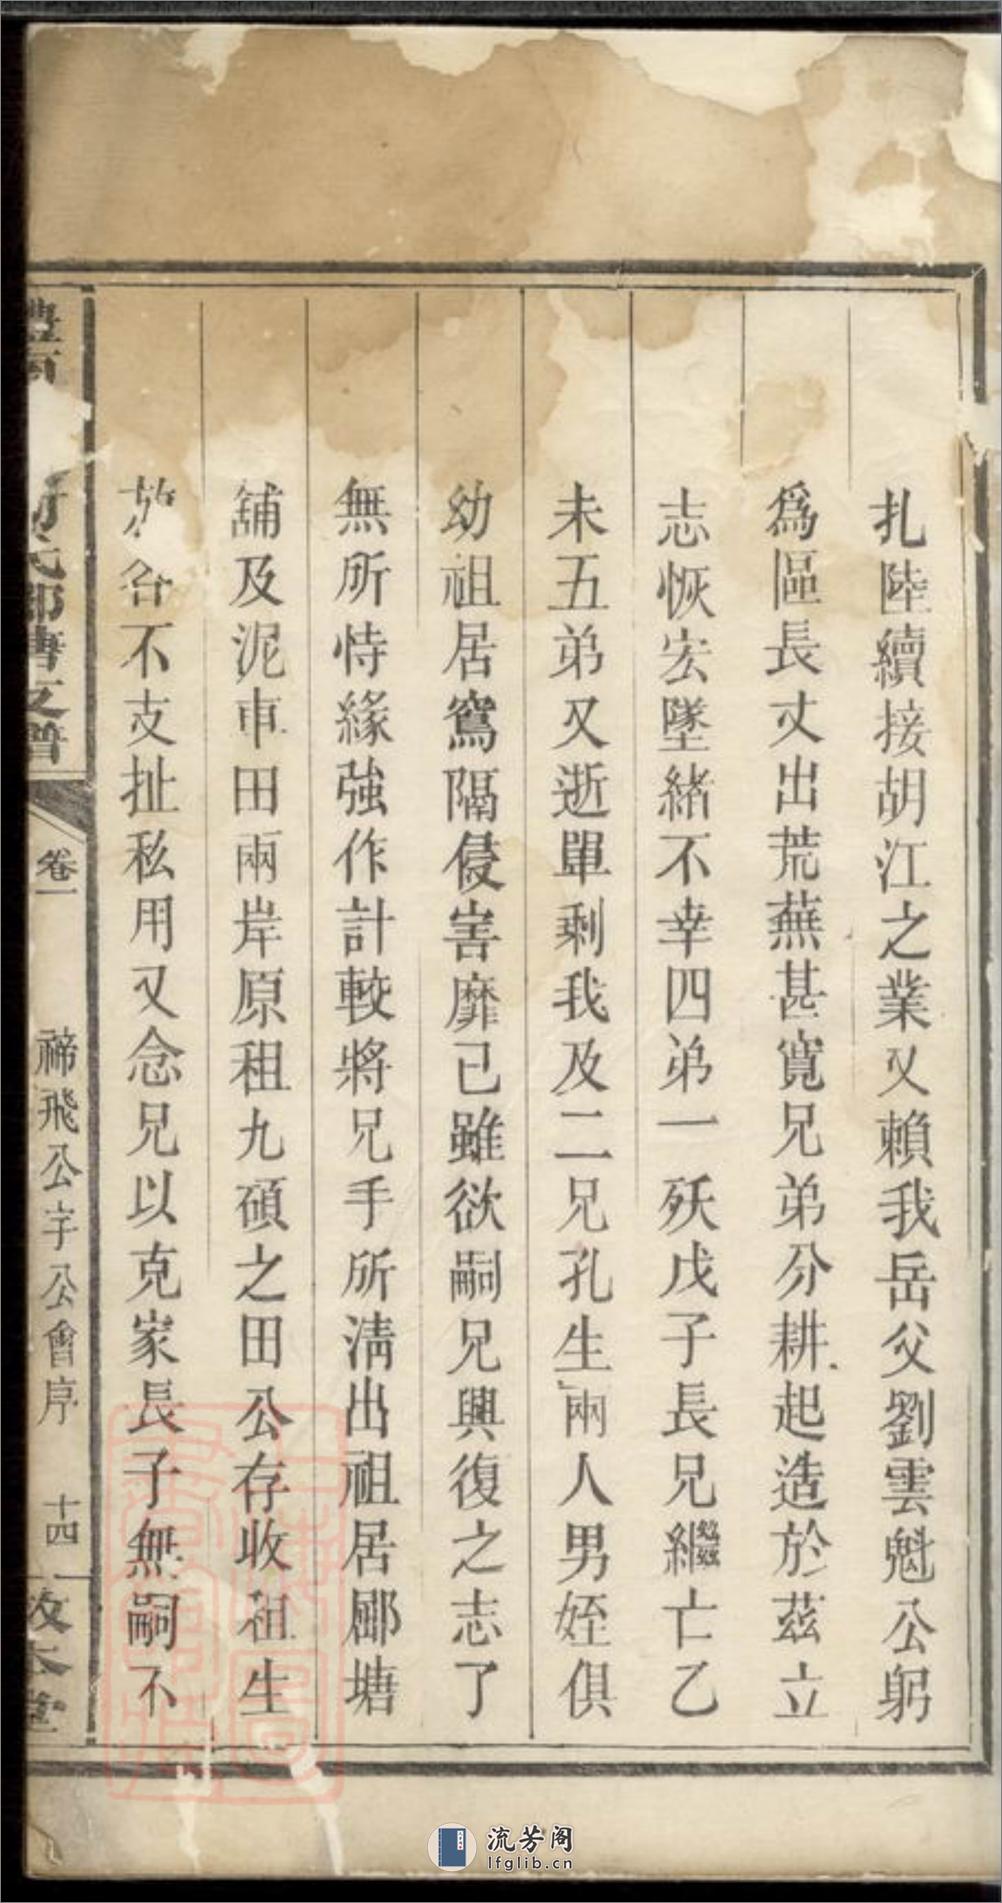 扎陸續接胡江之業又賴我岳父劉雲魁公躬
爲區長丈出荒蕪甚寬兄弟分耕起造於茲立
志恢宏墜緒不幸四弟一殀戊子長兄繼亡乙
未五弟又逝單剩我及二兄孔生兩人男姪俱
幼祖居窵隔侵害靡已雖欲嗣兄興復之志了
無所恃緣強作計較將兄手所淸出祖居郿塘
舖及泥車田兩岸原租九碩之田公存收租生
放各不支扯私用又念兄以克家長子無嗣不
氏郿塘支譜
卷一
禘飛公宇公會序
十四
敦本堂
流芳阁
lfglib.cn